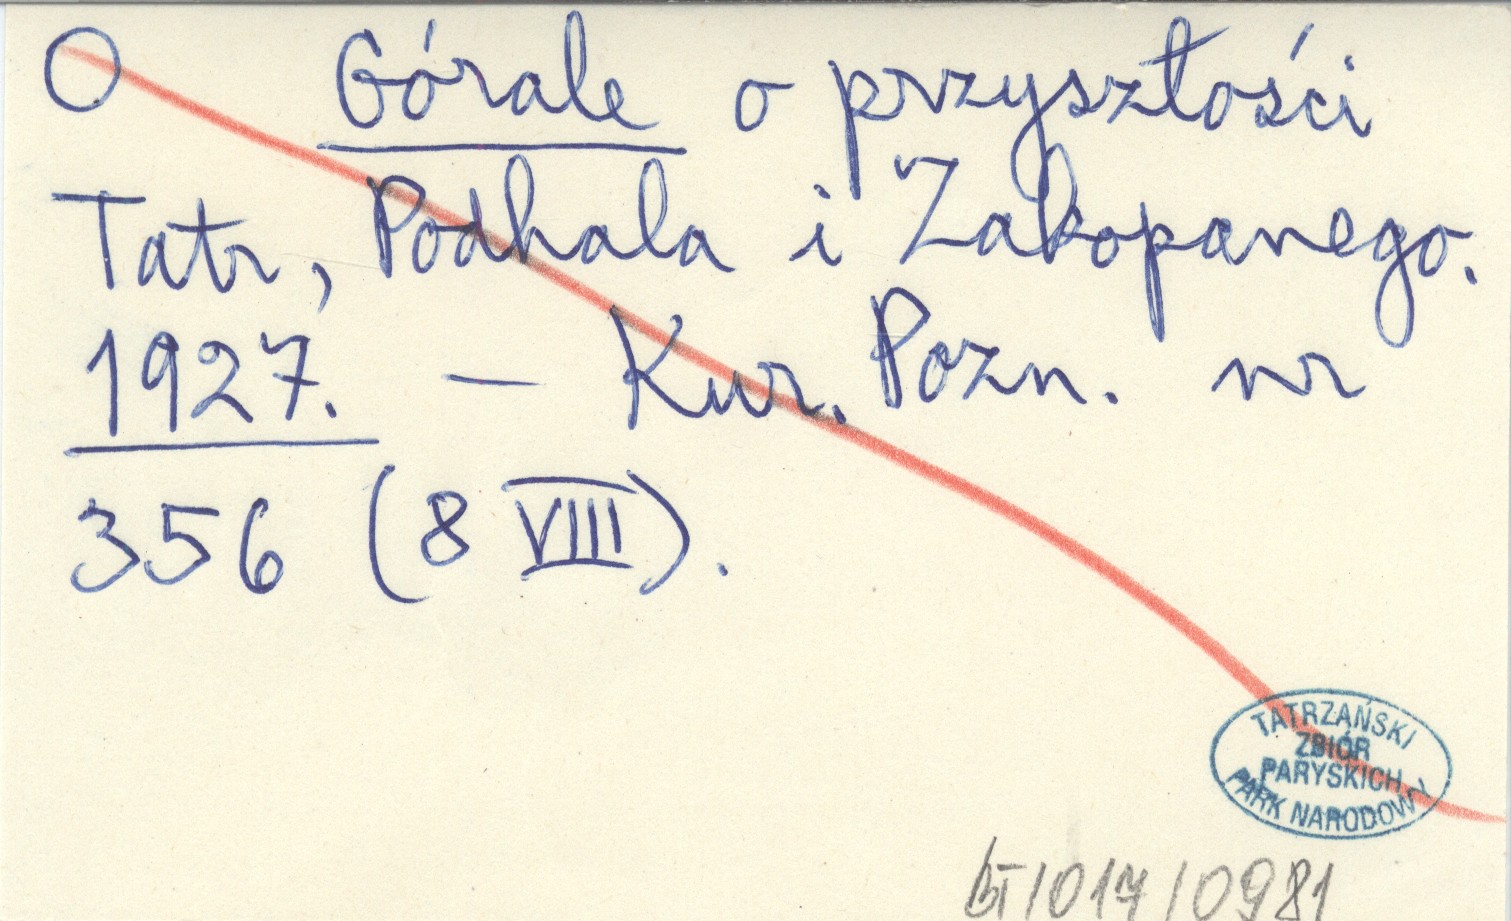 O Górale o przyszłości
Tatr, Podhala i Zakopanego.
1927. — Kur. Pozn. nr
356 (8 VIII).
TATRZAŃSKI
ZBIÓR
PARYSKICH
PARK NARODOWY
BT/017/0981